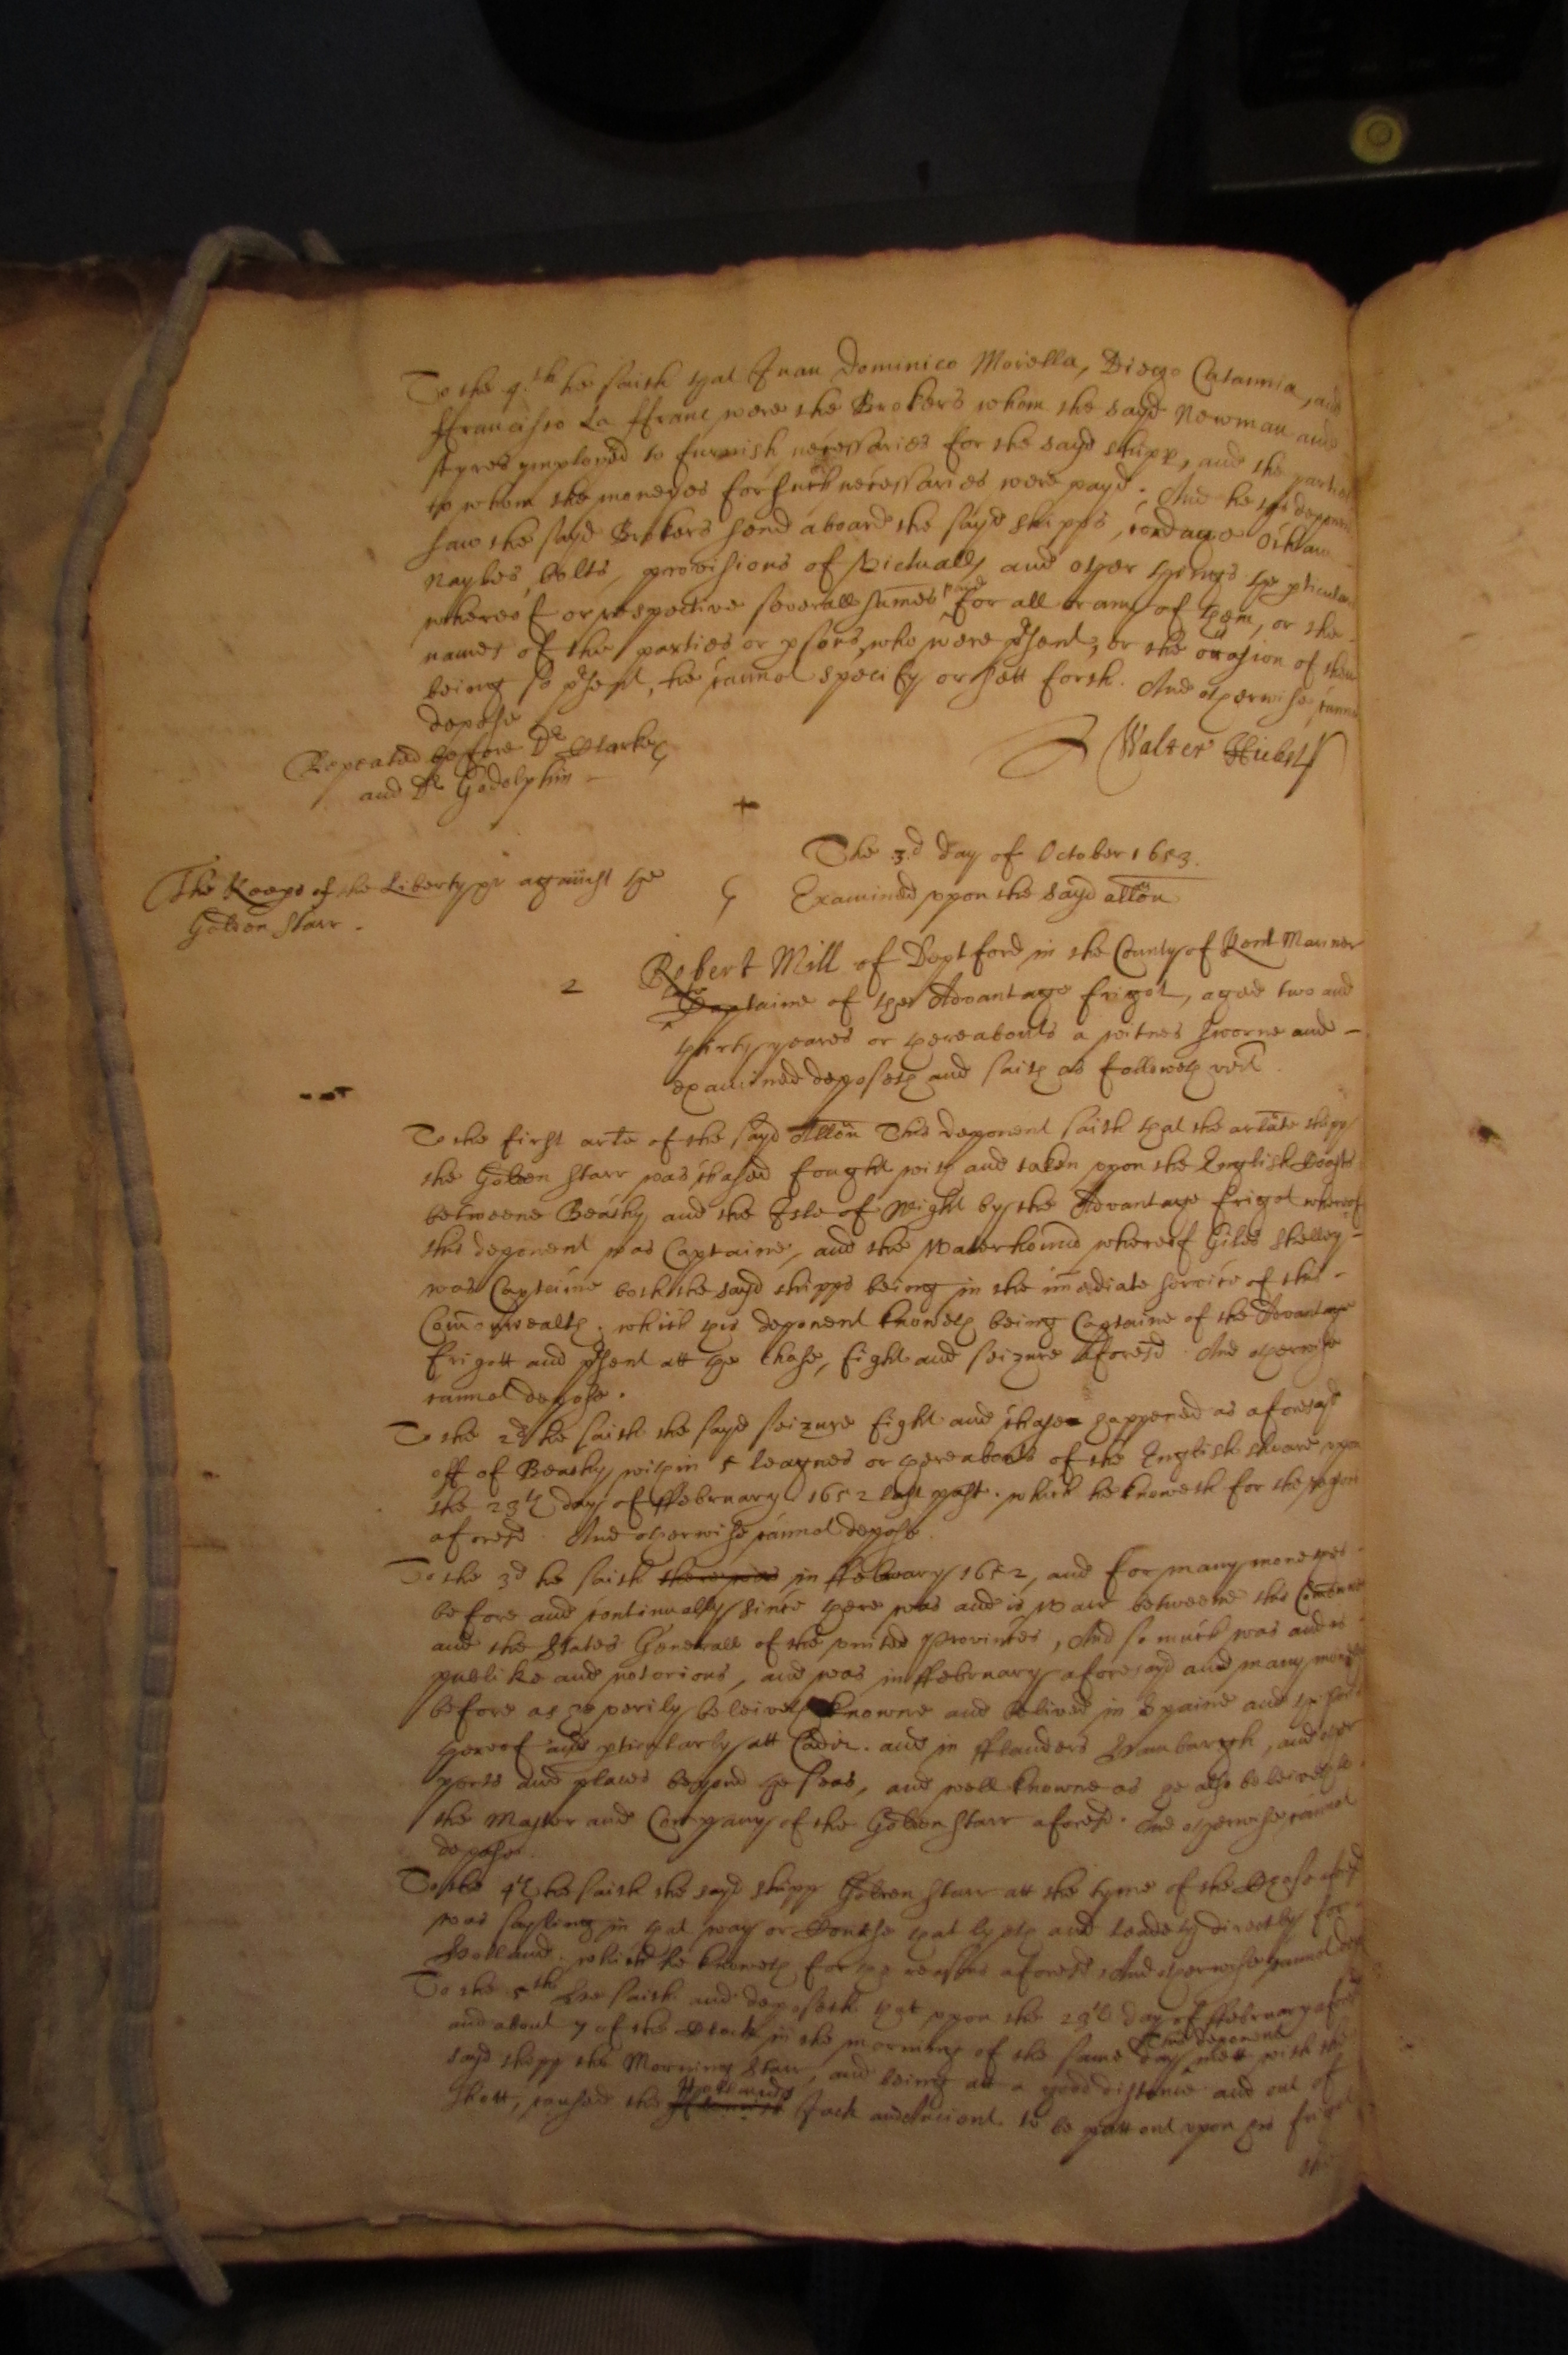 To the 4th. he saith that Juan Dominico Morella, Diego Catannia, and
ffrancisco La ffranc were the Brokers whom the sayd Newman and
ymployed to furnish necessaries for the sayd shipp, and the parties
to whom the moneyes for such necessaries were payd. And he this deponent
saw the sayd Brokers send aboard the sayd shipps, cordage Ockam
Nayles, bolts, provisions of victualls and other things the pticulars
whereof or respective severall sumes payd for all or any of them, or the
names of the parties or psons, who were psent, or the occasion of their
being so psent, he cannot specify or sett forth. And otherwise cannot
depose
Repeated before Dr Clarke
and Dr Godolphin
Walter
The 3d. day of October 1653.
The Keeps of the Liberty &c against the
Golden Starr.
Examined upon the sayd allõn
2
Robert Mill of Deptford in the County of Kent Mariner
Captaine of the Advantage frigot, aged two and
thirty yeares or thereabouts a witnes sworne and
examined deposeth and saith as followeth vizt.
To the first arte of the sayd Allõn This deponent saith that the arlate shipp
the Golden Starr was chased fought with and taken upon the English Coasts
betweene Beachy and the Isle of Wight by the Advantage frigot whereof
this deponent was Captaine, and the Waterhound whereof Giles Shelley
was Captaine both the sayd shipps being in the imediate service of this
Comonwealth. which this deponent knoweth being Captaine of the Advantage
frigott and psent att the chase, fight and seizure aforesd. And otherwise
cannot depose.
To the 2d he saith the sayd seizure fight and chase happened as aforesayd
off of Beachy within 5 leagues or thereabouts of the English shoare upon
the 23th day of ffebruary 1652 last past. which he knoweth for the reason
aforesd. And otherwise cannot depose.
To the 3d he saith there was in ffebruary 1652, and for many monethes
before and continually since there was and is warr betweene this
and the States Generall of the united Provinces, And so much was and is
publike and notorious, and was in ffebruary aforesayd and many
before as he verily beleiveth knowne and belived in Spaine and
thereof and pticularly att Cadiz. and in fflanders Hamburgh, and other
ports and places beyond the seas, and well knowne as he also beleiveth to
the Master and Company of the Golden Starr aforesd. And otherwise cannot
depose.
To the 4th he saith the sayd shipp Golden Starr att the tyme of the
was sayling in that way or Course that lyeth and leadeth directly for
Holland. which he knoweth for the reasons aforesd. And otherwise cannot
To the 5th. hee saith and deposeth that upon the 23th day of ffebruary aforesd
and about 7 of the Clock in the morning of the same day this deponent mett with the
sayd shipp the Morning Starr, and being att a good distance and out of
shott, caused the Hollands Jack and Ancient to be putt out upon his frigot